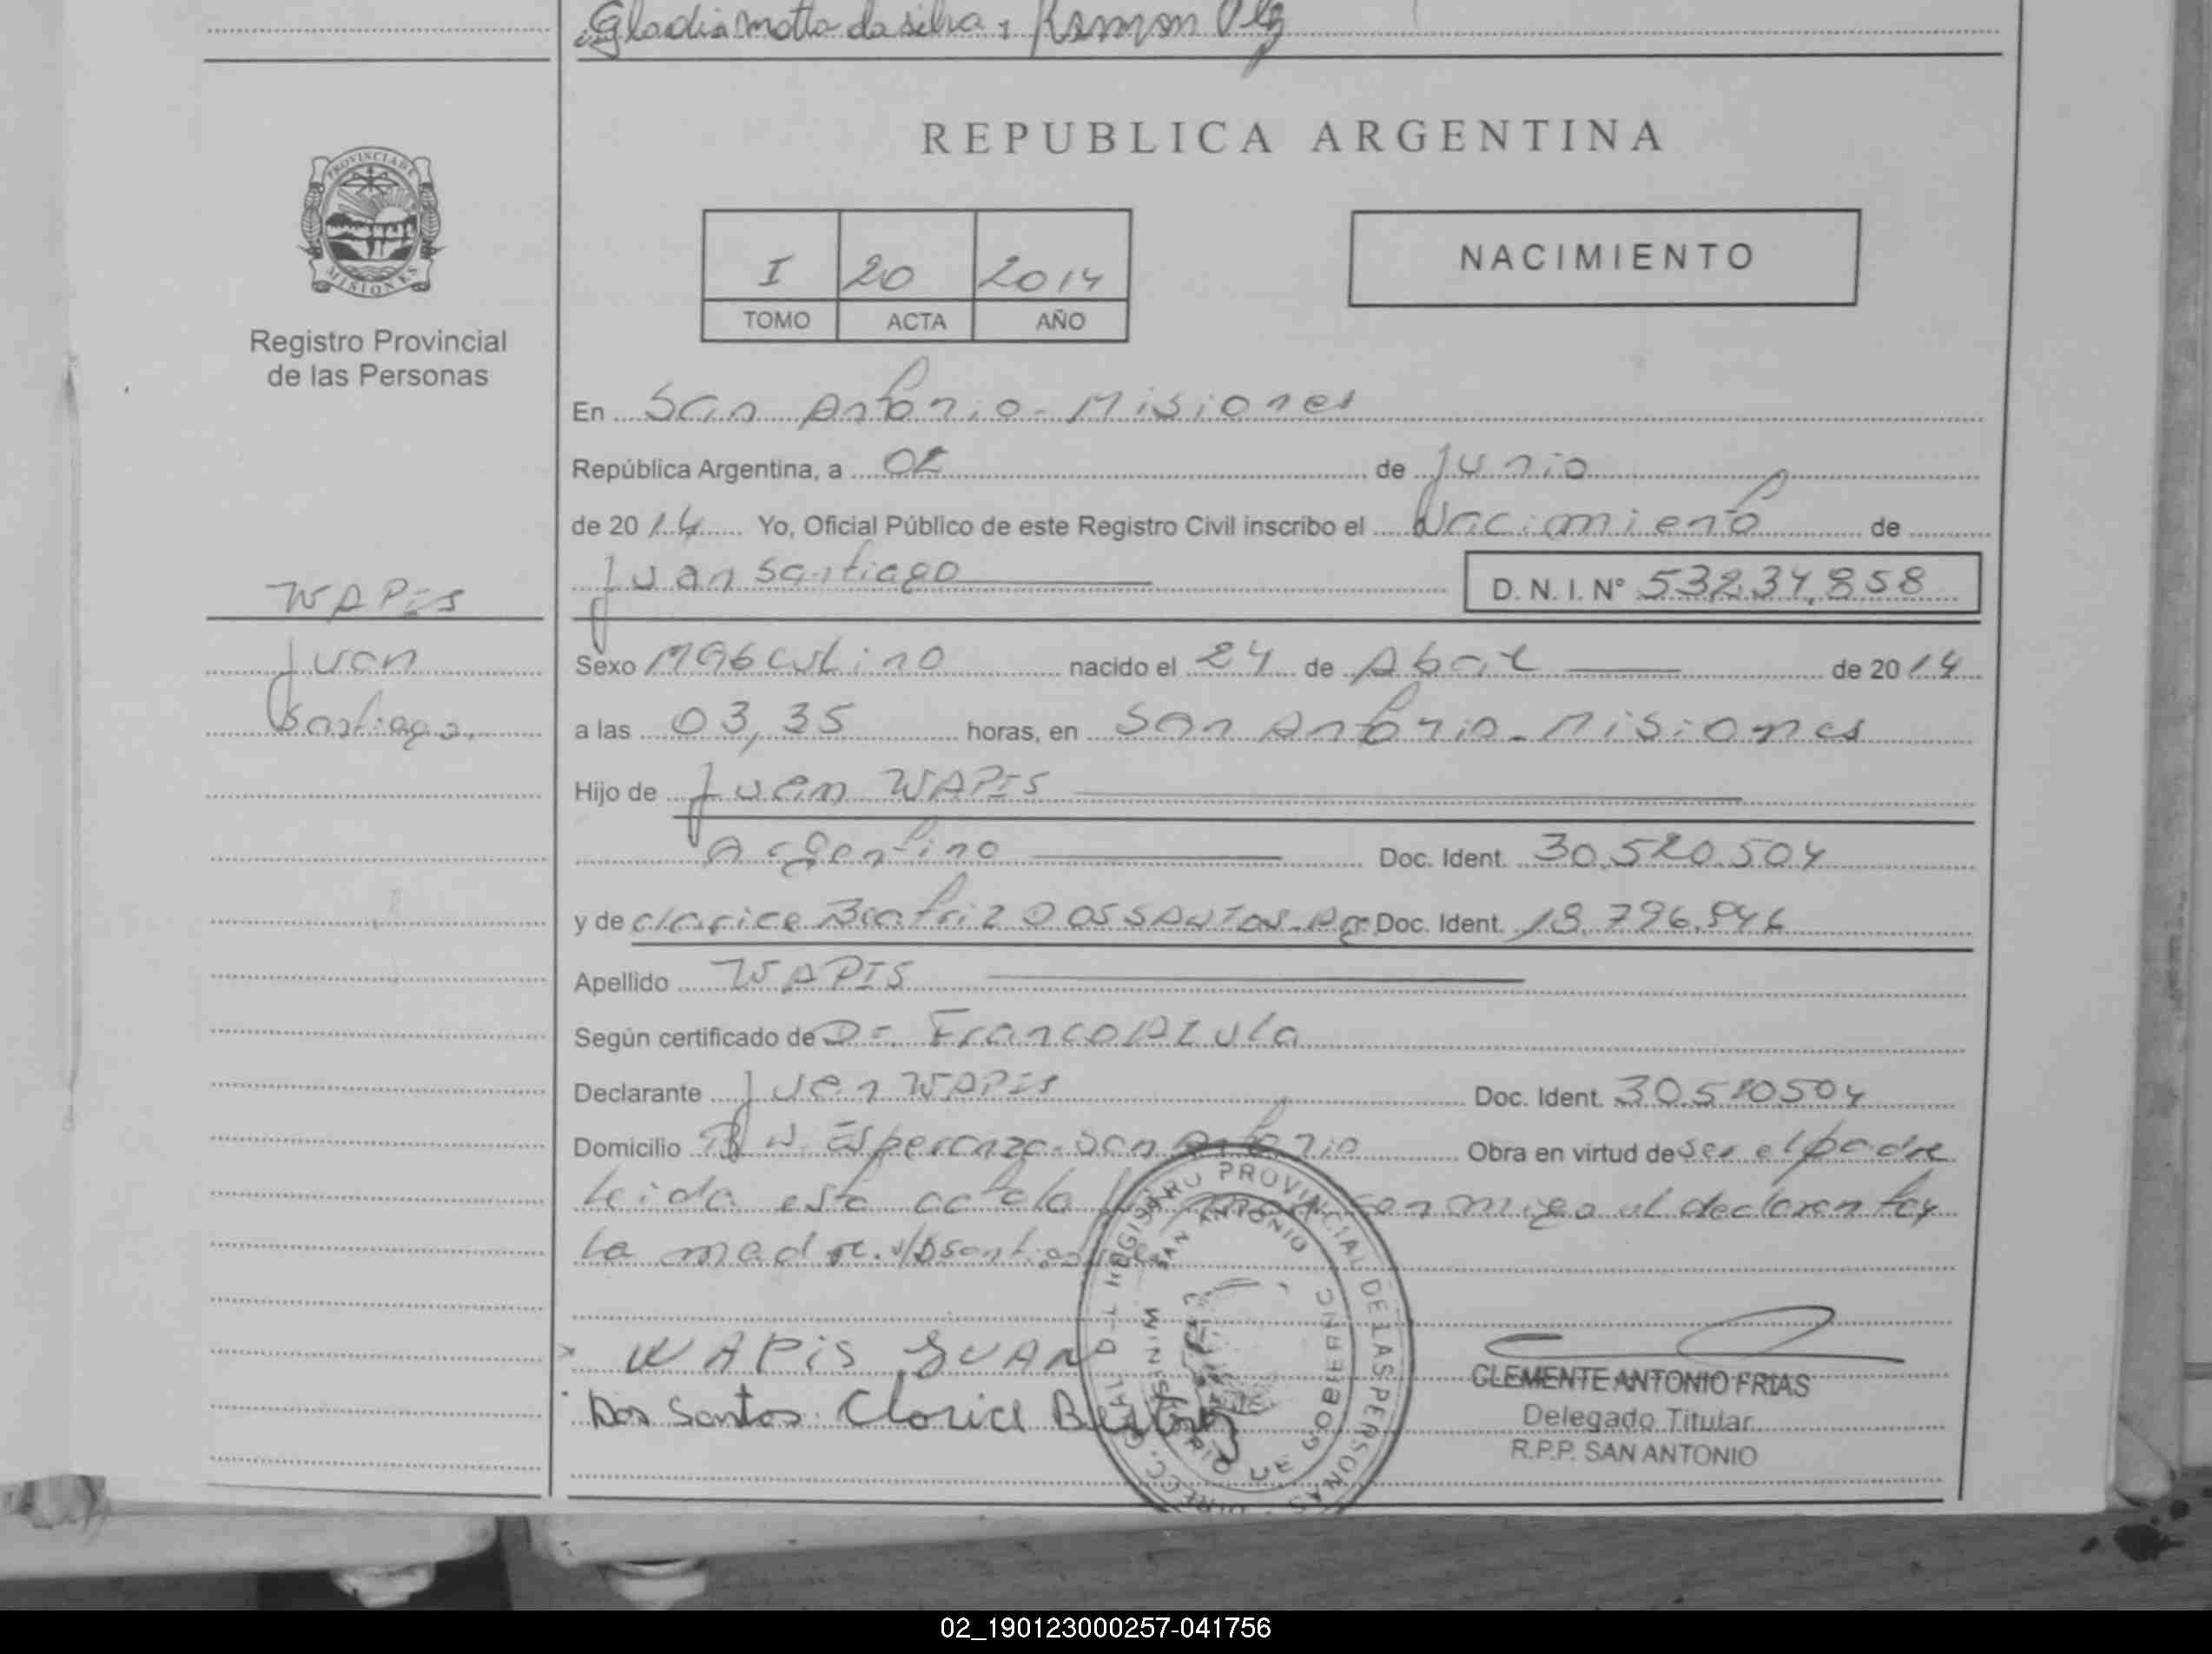 Gladia motta da silva y Ramon
REPUBLICA ARGENTINA
PROVINCIA DE
MISIONES
Registro Provincial
de las Personas
I 20 2014
TOMO ACTA AÑO
NACIMIENTO
En San Antonio - Misiones
República Argentina, a 02 de Junio
de 2014 Yo, Oficial Público de este Registro Civil inscribo el Nacimiento de
Juan Santiago
D. N. I. Nº 53234,858
WAPIS
Juan
Santiago
Sexo Masculino nacido el 24 de Abril de 2014
a las 03,35 horas, en San Antonio - Misiones
Hijo de Juan WAPIS
Argentino Doc. Ident. 30.520.504
y de Clarice Beatriz DOS SANTOS - Arg Doc. Ident. 18.796.946
Apellido WAPIS
Según certificado de Dr. Franco
Declarante Juan WAPIS Doc. Ident. 30.520504
Domicilio Esperanza - San Antonio Obra en virtud de ser el padre
Leida esta acta la conmigo el declarante y
La madre.
WAPIS JUAN
Dos Santos Clarice Beatriz
REGISTRO PROVINCIAL DE LAS PERSONAS
SAN ANTONIO
CLEMENTE ANTONIO FRIAS
Delegado Titular
R.P.P. SAN ANTONIO
02_190123000257-041756